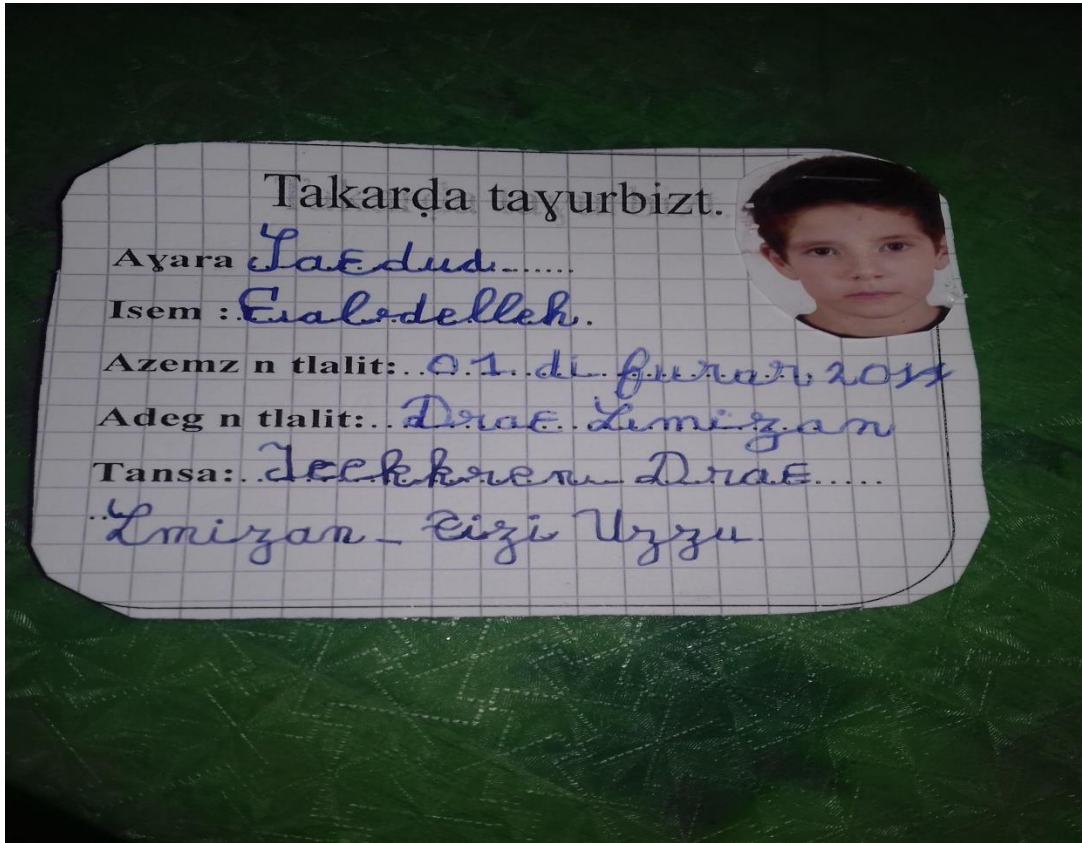 Takarḍa taɣurbizt.
Aɣara Saɛdud......
Isem :.Ɛabdelleh.
Azemz n tlalit:..01.di.furar, 2011
Adeg n tlalit:..Draɛ.Lmizan
Tansa:.. Draɛ.....
..Lmizan_Tizi Uzzu.